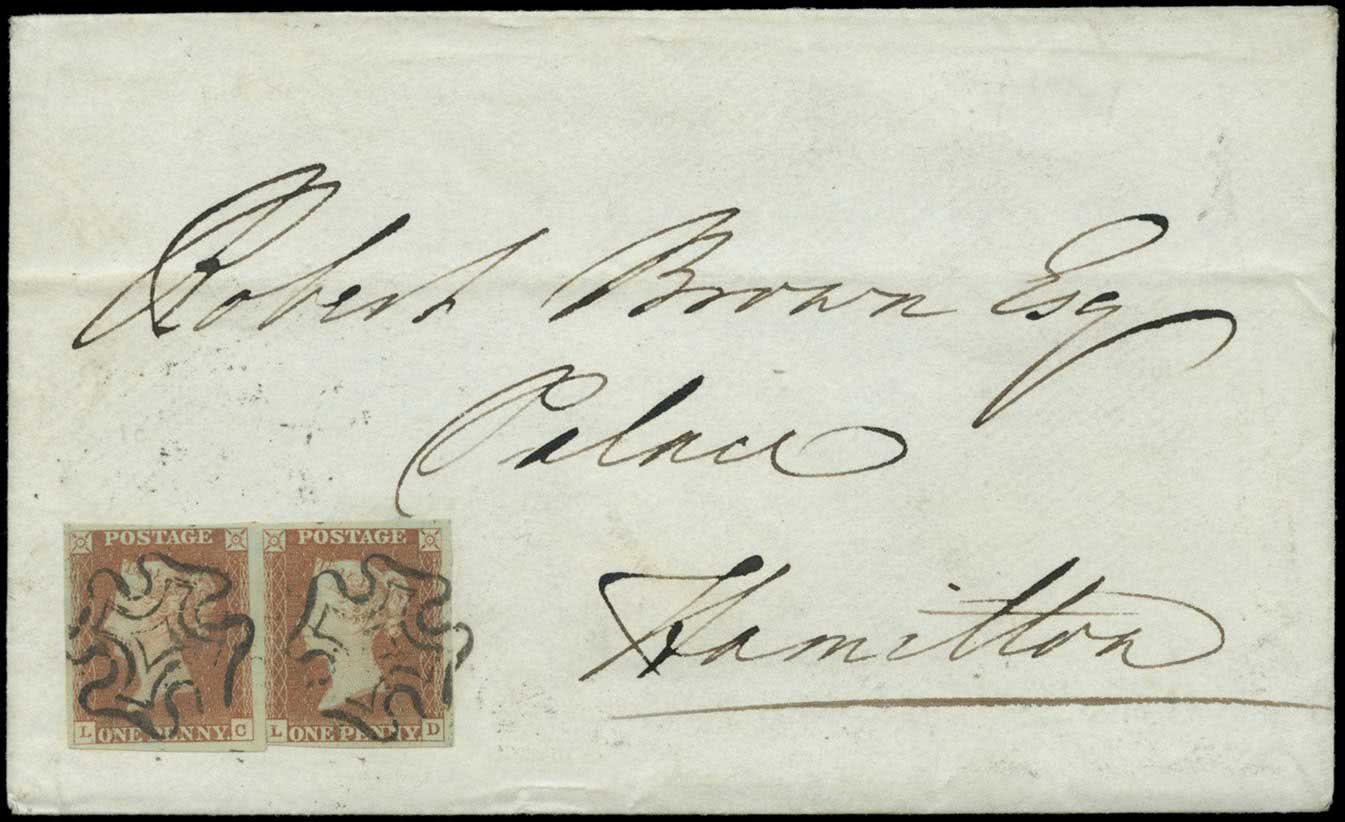 Robert Brown Esq
Palace
Hamilton
POSTAGE POSTAGE
L ONE PENNY C L ONE PENNY D